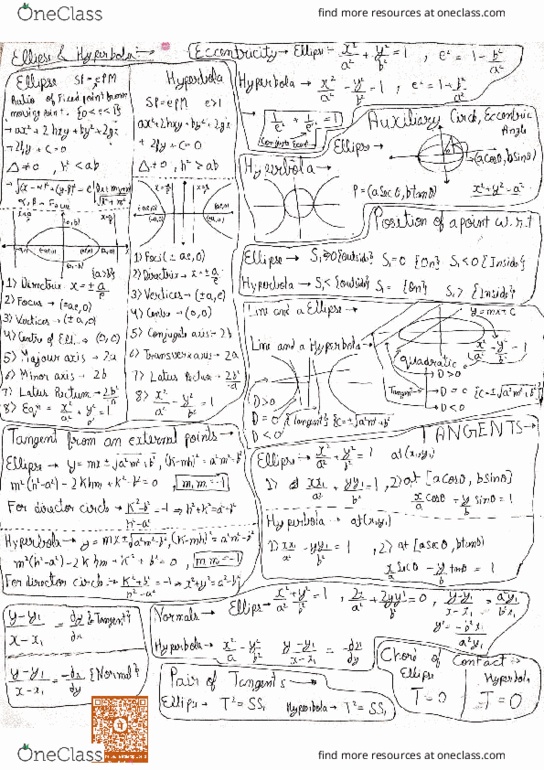 OneClass
find more resources at oneclass.com
Ellipse & Hyperbola :→
Eccentricity → Ellipse :- x²/a² + y²/b² = 1 , e² = 1 - b²/a²
Hyperbola → x²/a² - y²/b² = 1 , e² = 1 + b²/a²
Ellipse SP = ePM
Ratio of Fixed point from
moving point. {0<e<1}
→ ax² + 2hxy + by² + 2gx
+ 2fy + c = 0
Δ ≠ 0 , h² < ab
1) Directrix x = ± a/e
2) Focus → (±ae, 0)
3) Vertices → (± a, 0)
4) Centre of Ell. → (0, 0)
5) Majour axis → 2a
6) Minor axis → 2b
7) Latus Rectum → 2b²/a
8) Eqⁿ = x²/a² + y²/b² = 1
Hyperbola
SP = ePM e>1
ax² + 2hxy + by² + 2gx
+ 2fy + c = 0
Δ ≠ 0, h² > ab
1) Foci (± ae, 0)
2) Directrix → x = ± a/e
3) Vertices → (± a, 0)
4) Centre → (0, 0)
5) Conjugate axis → 2b
6) Transverse axis → 2a
7) Latus Rectum → 2b²/a
8) x²/a² - y²/b² = 1
Auxiliary Circle, Eccentric
Angle
Ellipse →
(a cosθ, b sinθ)
Hyperbola →
P = (a secθ, b tanθ) x² + y² = a²
Position of a point w.r.t
Ellipse → S₁ > 0 {outside} S₁ = 0 {On} S₁ < 0 {Inside}
Hyperbola → S₁ < {outside} S₁ = {on} S₁ > {Inside}
Line and a Ellipse →
y = mx + c
Line and a Hyperbola →
x²/a² - y²/b² = 1
Quadratic
D > 0
D = 0 {tangent} {c = ± √a²m² - b²}
D < 0
Tangent → D = 0 {c = ± √a²m² + b²}
D < 0
Tangent from an external points →
Ellipse → y = mx ± √a²m² + b² , (k - mh)² = a²m² + b²
m²(h² - a²) - 2khm + k² - b² = 0 , m₁m₂ = -1
For director circle → k² - b²/h² - a² = -1 ⇒ h² + k² = a² + b²
Hyperbola → y = mx ± √a²m² - b² , (k - mh)² = a²m² - b²
m²(h² - a²) - 2khm + k² + b² = 0 , m₁m₂ = -1
For director circle → k² + b²/h² - a² = -1 ⇒ x² + y² = a² - b²
TANGENTS →
Ellipse → x²/a² + y²/b² = 1 at (x₁, y₁)
1) xx₁/a² + yy₁/b² = 1 , 2) at [a cosθ, b sinθ]
x/a cosθ + y/b sinθ = 1
Hyperbola → at (x₁, y₁)
1) xx₁/a² - yy₁/b² = 1 , 2) at [a secθ, b tanθ]
x/a secθ - y/b tanθ = 1
y - y₁/x - x₁ = dy/dx {Tangent}
y - y₁/x - x₁ = -dx/dy {Normal}
Normals → Ellipse → x²/a² + y²/b² = 1 , 2x/a² + 2yy'/b² = 0 , y - y₁/x - x₁ = a²y₁/b²x₁
y' = -b²x₁/a²y₁
Hyperbola → x²/a² - y²/b² y - y₁/x - x₁ = -dx/dy
Pair of Tangents →
Ellipse → T² = SS₁ Hyperbola → T² = SS₁
Chord of Contact →
Ellipse Hyperbola
T = 0 T = 0
OneClass
find more resources at oneclass.com